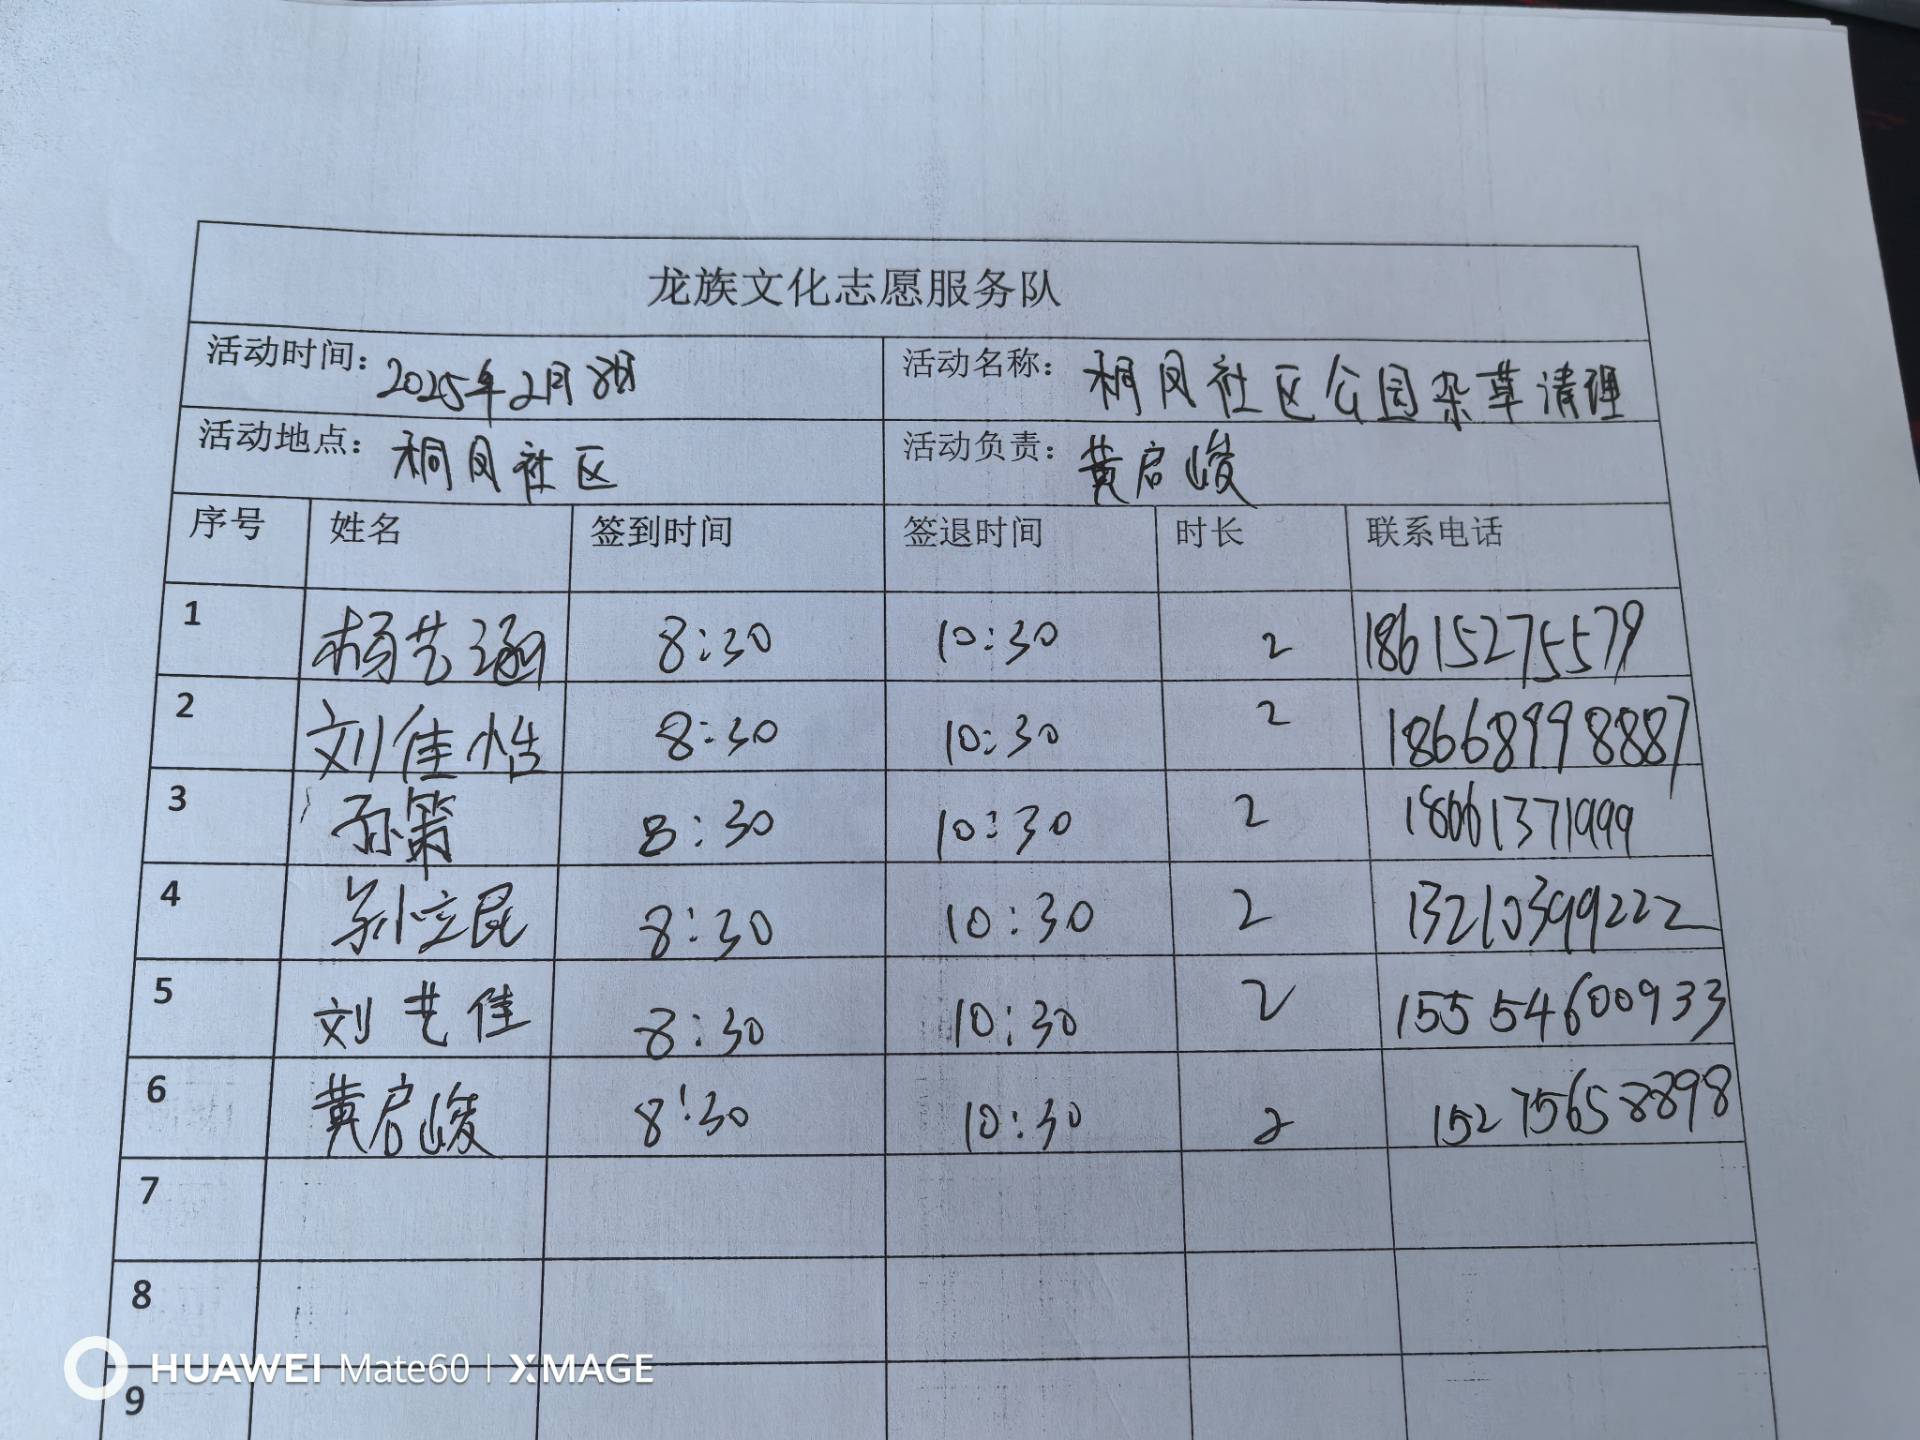 龙族文化志愿服务队
活动时间: 2025年2月8日 活动名称: 桐凤社区公园杂草清理
活动地点: 桐凤社区 活动负责: 黄启峻
序号 姓名 签到时间 签退时间 时长 联系电话
1 杨艺涵 8:30 10:30 2 18615275579
2 刘佳怡 8:30 10:30 2 18668998887
3 孙第 8:30 10:30 2 18661371999
4 孙立昆 8:30 10:30 2 13210399222
5 刘艺佳 8:30 10:30 2 15554600933
6 黄启峻 8:30 10:30 2 15275658898
7
8
9
HUAWEI Mate60 | XMAGE